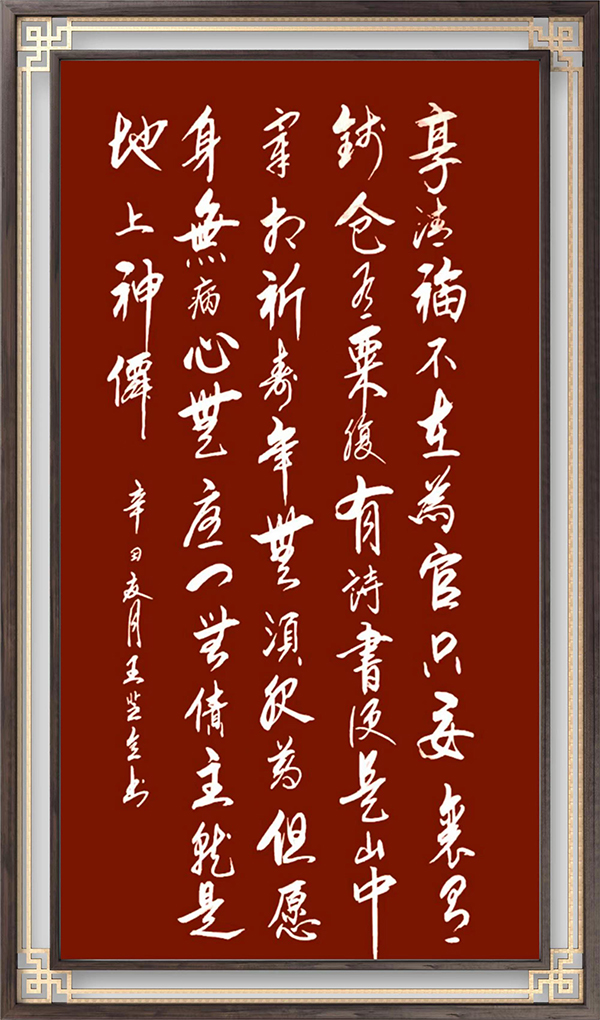 享清福不在為官只要囊有
錢仓有粟腹有詩書便是山中
宰相祈寿年無須服药但愿
身無病心無虑门無債主就是
地上神僊
辛丑夏月王芝书